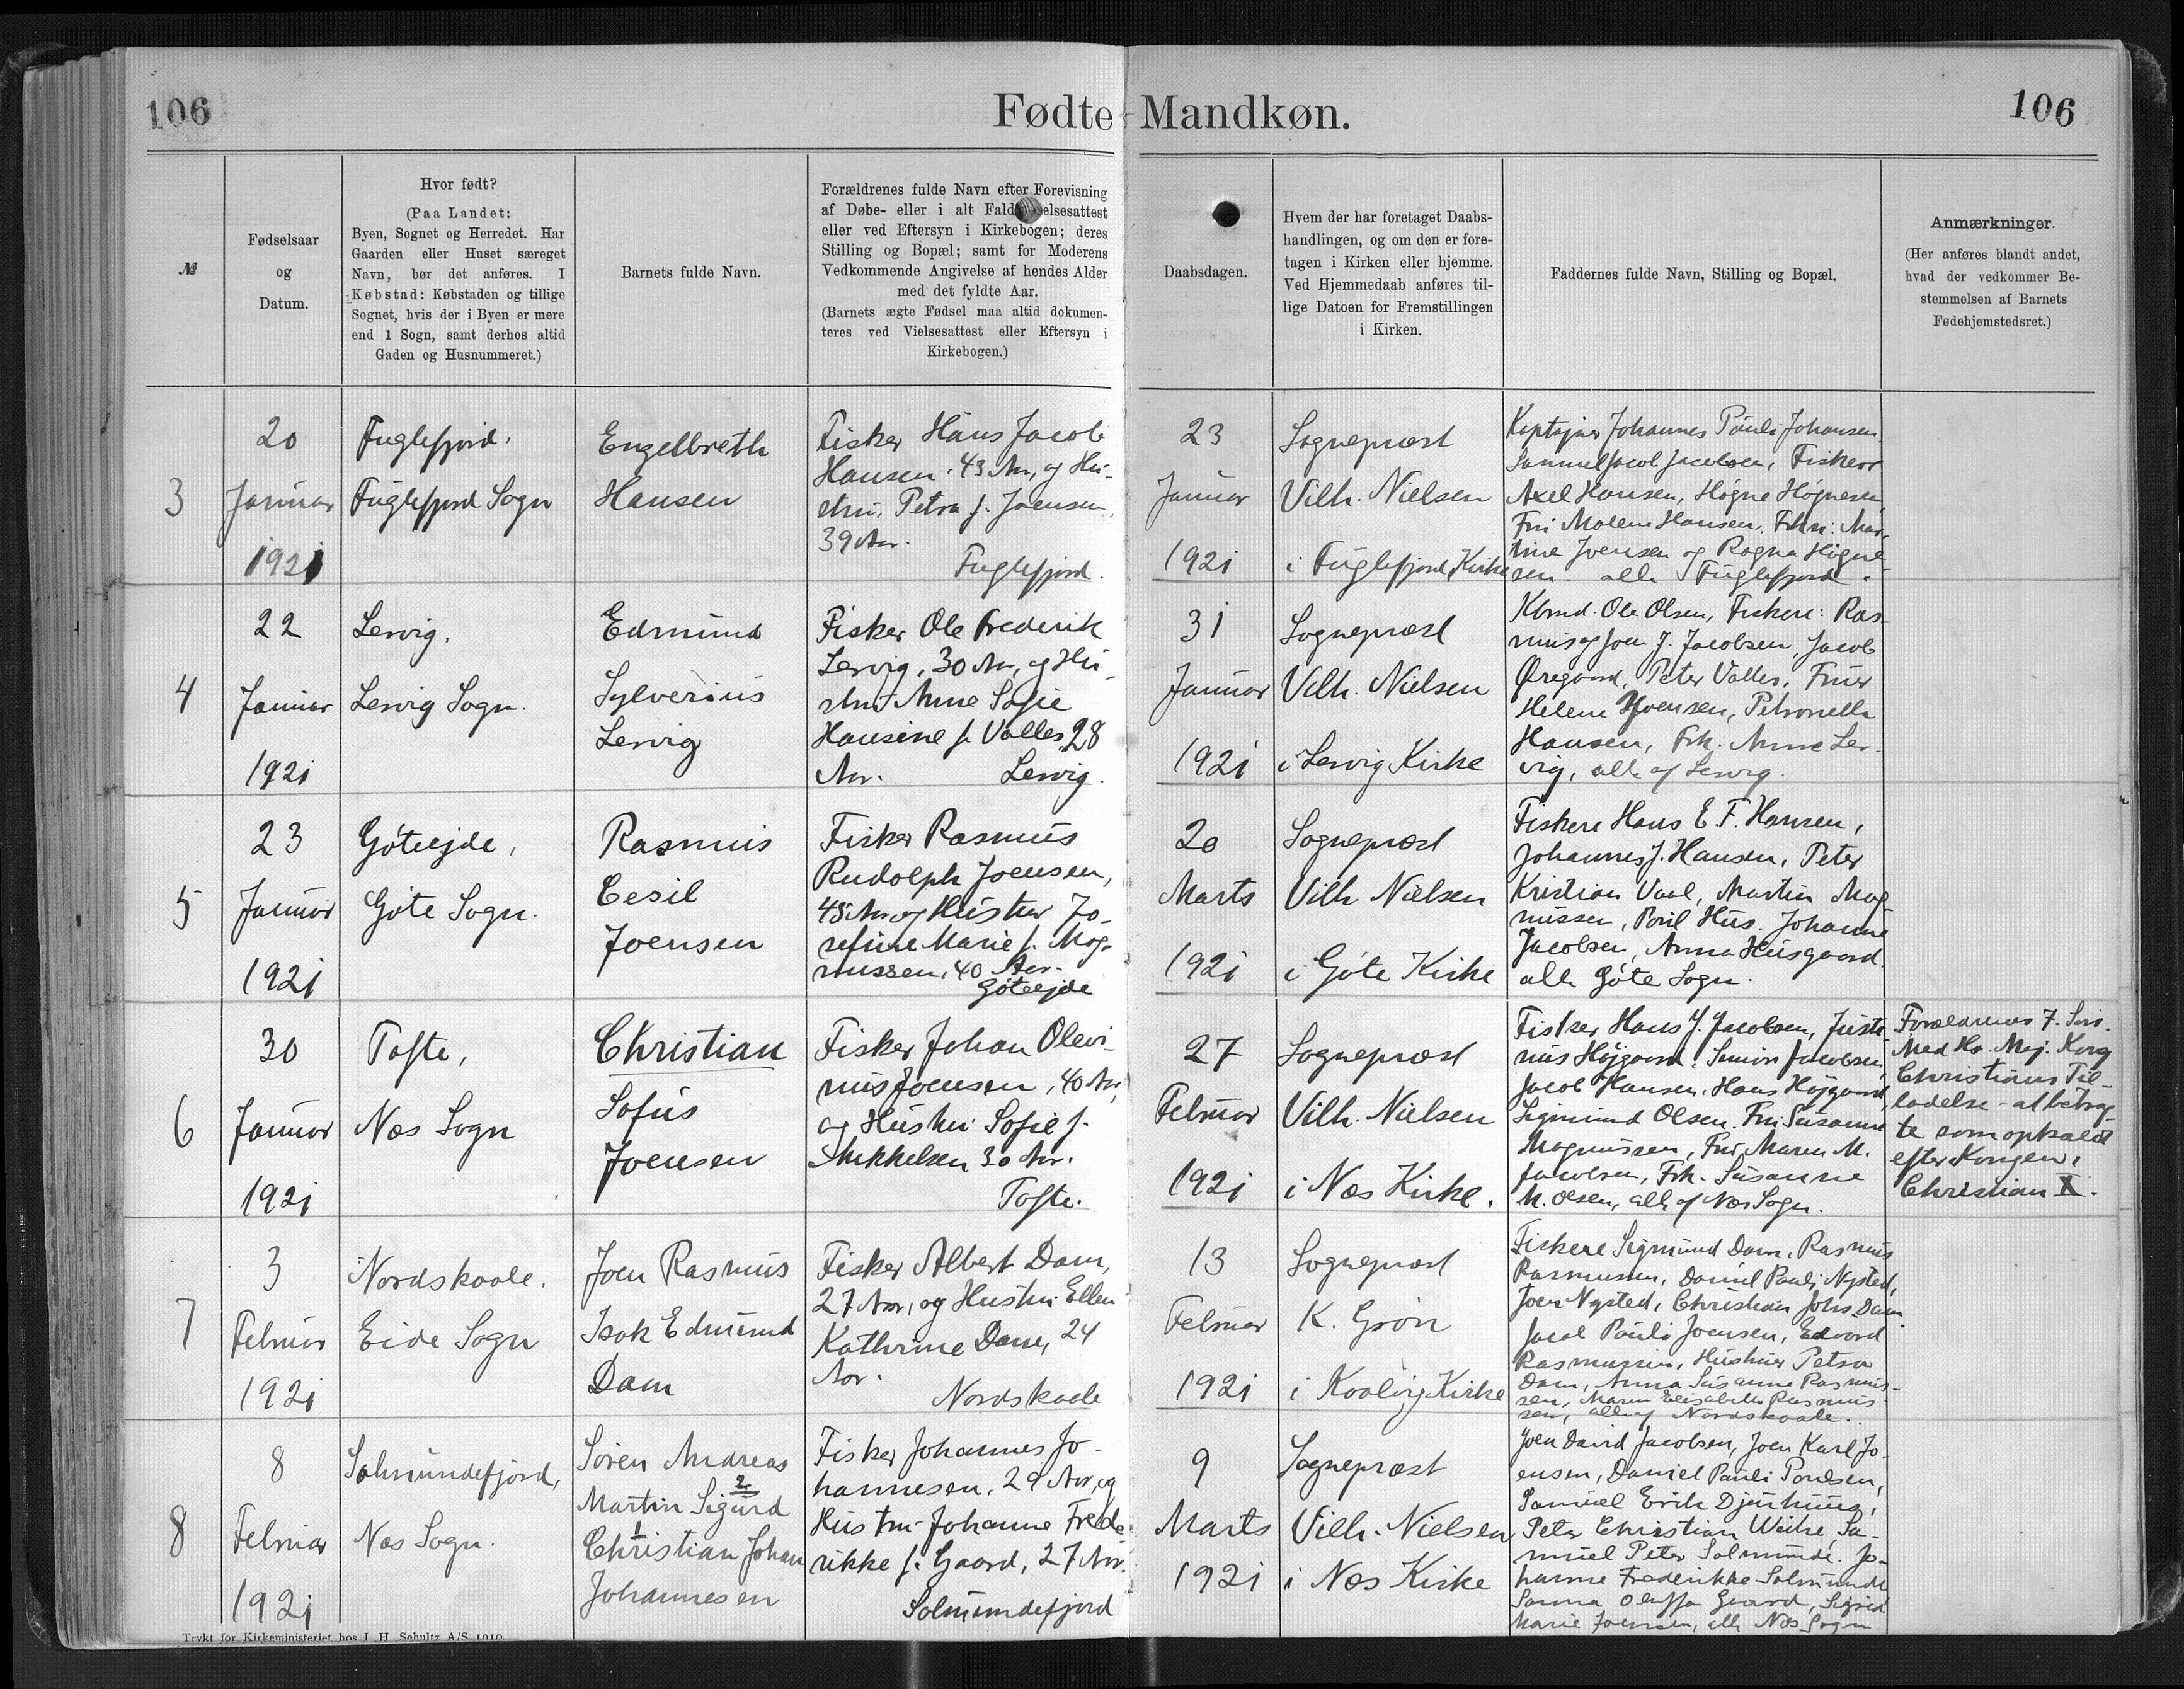 106
Fødte Mandkøn.
106
№
Fødselsaar
og
Datum.
Hvor født?
(Paa Landet:
Byen, Sognet og Herredet. Har
Gaarden eller Huset særeget
Navn, bør det anføres. I
Købstad: Købstaden og tillige
Sognet, hvis der i Byen er mere
end 1 Sogn, samt derhos altid
Gaden og Husnummeret.)
Barnets fulde Navn.
Forældrenes fulde Navn efter Forevisning
af Døbe- eller i alt Fald
eller ved Eftersyn i Kirkebogen; deres
Stilling og Bopæl; samt for Moderens
Vedkommende Angivelse af hendes Alder
med det fyldte Aar.
(Barnets ægte Fødsel maa altid dokumen-
teres ved Vielsesattest eller Eftersyn i
Kirkebogen.)
Daabsdagen.
Hvem der har foretaget Daabs-
handlingen, og om den er fore-
tagen i Kirken eller hjemme.
Ved Hjemmedaab anføres til-
lige Datoen for Fremstillingen
i Kirken.
Faddernes fulde Navn, Stilling og Bopæl.
Anmærkninger.
(Her anføres blandt andet,
hvad der vedkommer Be-
stemmelsen af Barnets
Fødehjemstedsret.)
3
20
Januar
1921
Fuglefjord.
Fuglefjord Sogn
Engelbreth
Hansen
Fisker Hans Jacob
Hansen, 43 Aar, og Hu-
stru, Petra f. Joensen,
39 Aar.
Fuglefjord.
23
Januar
1921
Sognepræst
Vilh. Nielsen
i Fuglefjord Kirke
Kaptajner Johannes Pauli Johansen,
Samuel Jacob Jacobsen, Fiskere
Axel Hansen, Høgne Høgnesen,
Fru Malene Hansen, Frkn: Mar-
tine Joensen og Ragna Høgne-
sen. alle Fuglefjord.
4
22
Januar
1921
Lervig.
Lervig Sogn.
Edmund
Sylverius
Lervig
Fisker Ole Frederik
Lervig, 30 Aar, og Hu-
stru Anne Sofie
Hansine f. Valles, 28
Aar. Lervig.
31
Januar
1921
Sognepræst
Vilh. Nielsen
i Lervig Kirke
Kbmd. Ole Olsen, Fiskere: Ras-
mus og Joen J. Jacobsen, Jacob
Øregaard, Peter Valles, Fruer
Helene Joensen, Petronella
Hansen, Frk. Anne Ler-
vig, alle af Lervig.
5
23
Januar
1921
Gøteejde,
Gøte Sogn.
Rasmus
Cesil
Joensen
Fisker Rasmus
Rudolph Joensen,
45 Aar og Hustru Jo-
sefine Marie f. Mag-
nussen, 40 Aar.
Gøteejde
20
Marts
1921
Sognepræst
Vilh. Nielsen
i Gøte Kirke
Fiskere Hans E. F. Hansen,
Johannes J. Hansen, Peter
Kristian Vaal, Martin Mag-
nussen, Poul Hus. Johanne
Jacobsen, Anna Husgaard.
alle Gøte Sogn.
6
30
Januar
1921
Tofte,
Næs Sogn
Christian
Sofus
Joensen
Fisker Johan Olevi-
nus Joensen, 40 Aar,
og Hustru Sofie f.
Mikkelsen 30 Aar.
Tofte.
27
Februar
1921
Sognepræst
Vilh. Nielsen
i Næs Kirke.
Fisker Hans J. Jacobsen, Justi-
nus Højgaard, Simon Jacobsen,
Jacob Hansen, Hans Højgaard,
Sigmund Olsen. Fru Susanne
Magnussen, Fru Maren M.
Jacobsen, Frk. Susanne
M. Olsen, alle af Næs Sogn.
Forældrenes 7. Søn.
Med Hs. Maj. Kong
Christians Til-
ladelse - at betrag-
te som opkaldt
efter Kongen,
Christian X.
7
3
Februar
1921
Nordskaale.
Eide Sogn
Joen Rasmus
Isak Edmund
Dam
Fisker Albert Dam,
27 Aar, og Hustru Ellen
Kathrine Dam, 24
Aar.
Nordskaale
13
Februar
1921
Sognepræst
K. Grøn
i Kvalvig Kirke
Fiskere Sigmund Dam, Rasmus
Rasmussen, Daniel Pauli Nysted,
Joen Nysted, Christian Johs Dam
Jacob Pauli Joensen, Edvard
Rasmussen, Hustruer Petra
Dam, Anna Susanne Rasmus-
sen, Maren Elisabeth Rasmus-
sen, alle af Nordskaale.
8
8
Februar
1921
Salmundefjord,
Næs Sogn.
Søren Andreas
Martin Sigurd
2
1
Christian Johan
Johannesen
Fisker Johannes Jo-
hannesen, 29 Aar, og
Hustru Johanne Frede-
rikke f. Gaard, 27 Aar.
Salmundefjord
9
Marts
1921
Sognepræst
Vilh. Nielsen
i Næs Kirke
Joen David Jacobsen, Joen Karl Jo-
ensen, Daniel Pauli Poulsen,
Samuel Erik Djurhuus,
Peter Christian Weihe, Sa-
muel Peter Salmunde. Jo-
hanne Frederikke Salmunde
Sanna Oluffa Gaard, Sigrid
Marie Joensen, alle Næs Sogn
Trykt for Kirkeministeriet hos J. H. Schultz A/S 1919